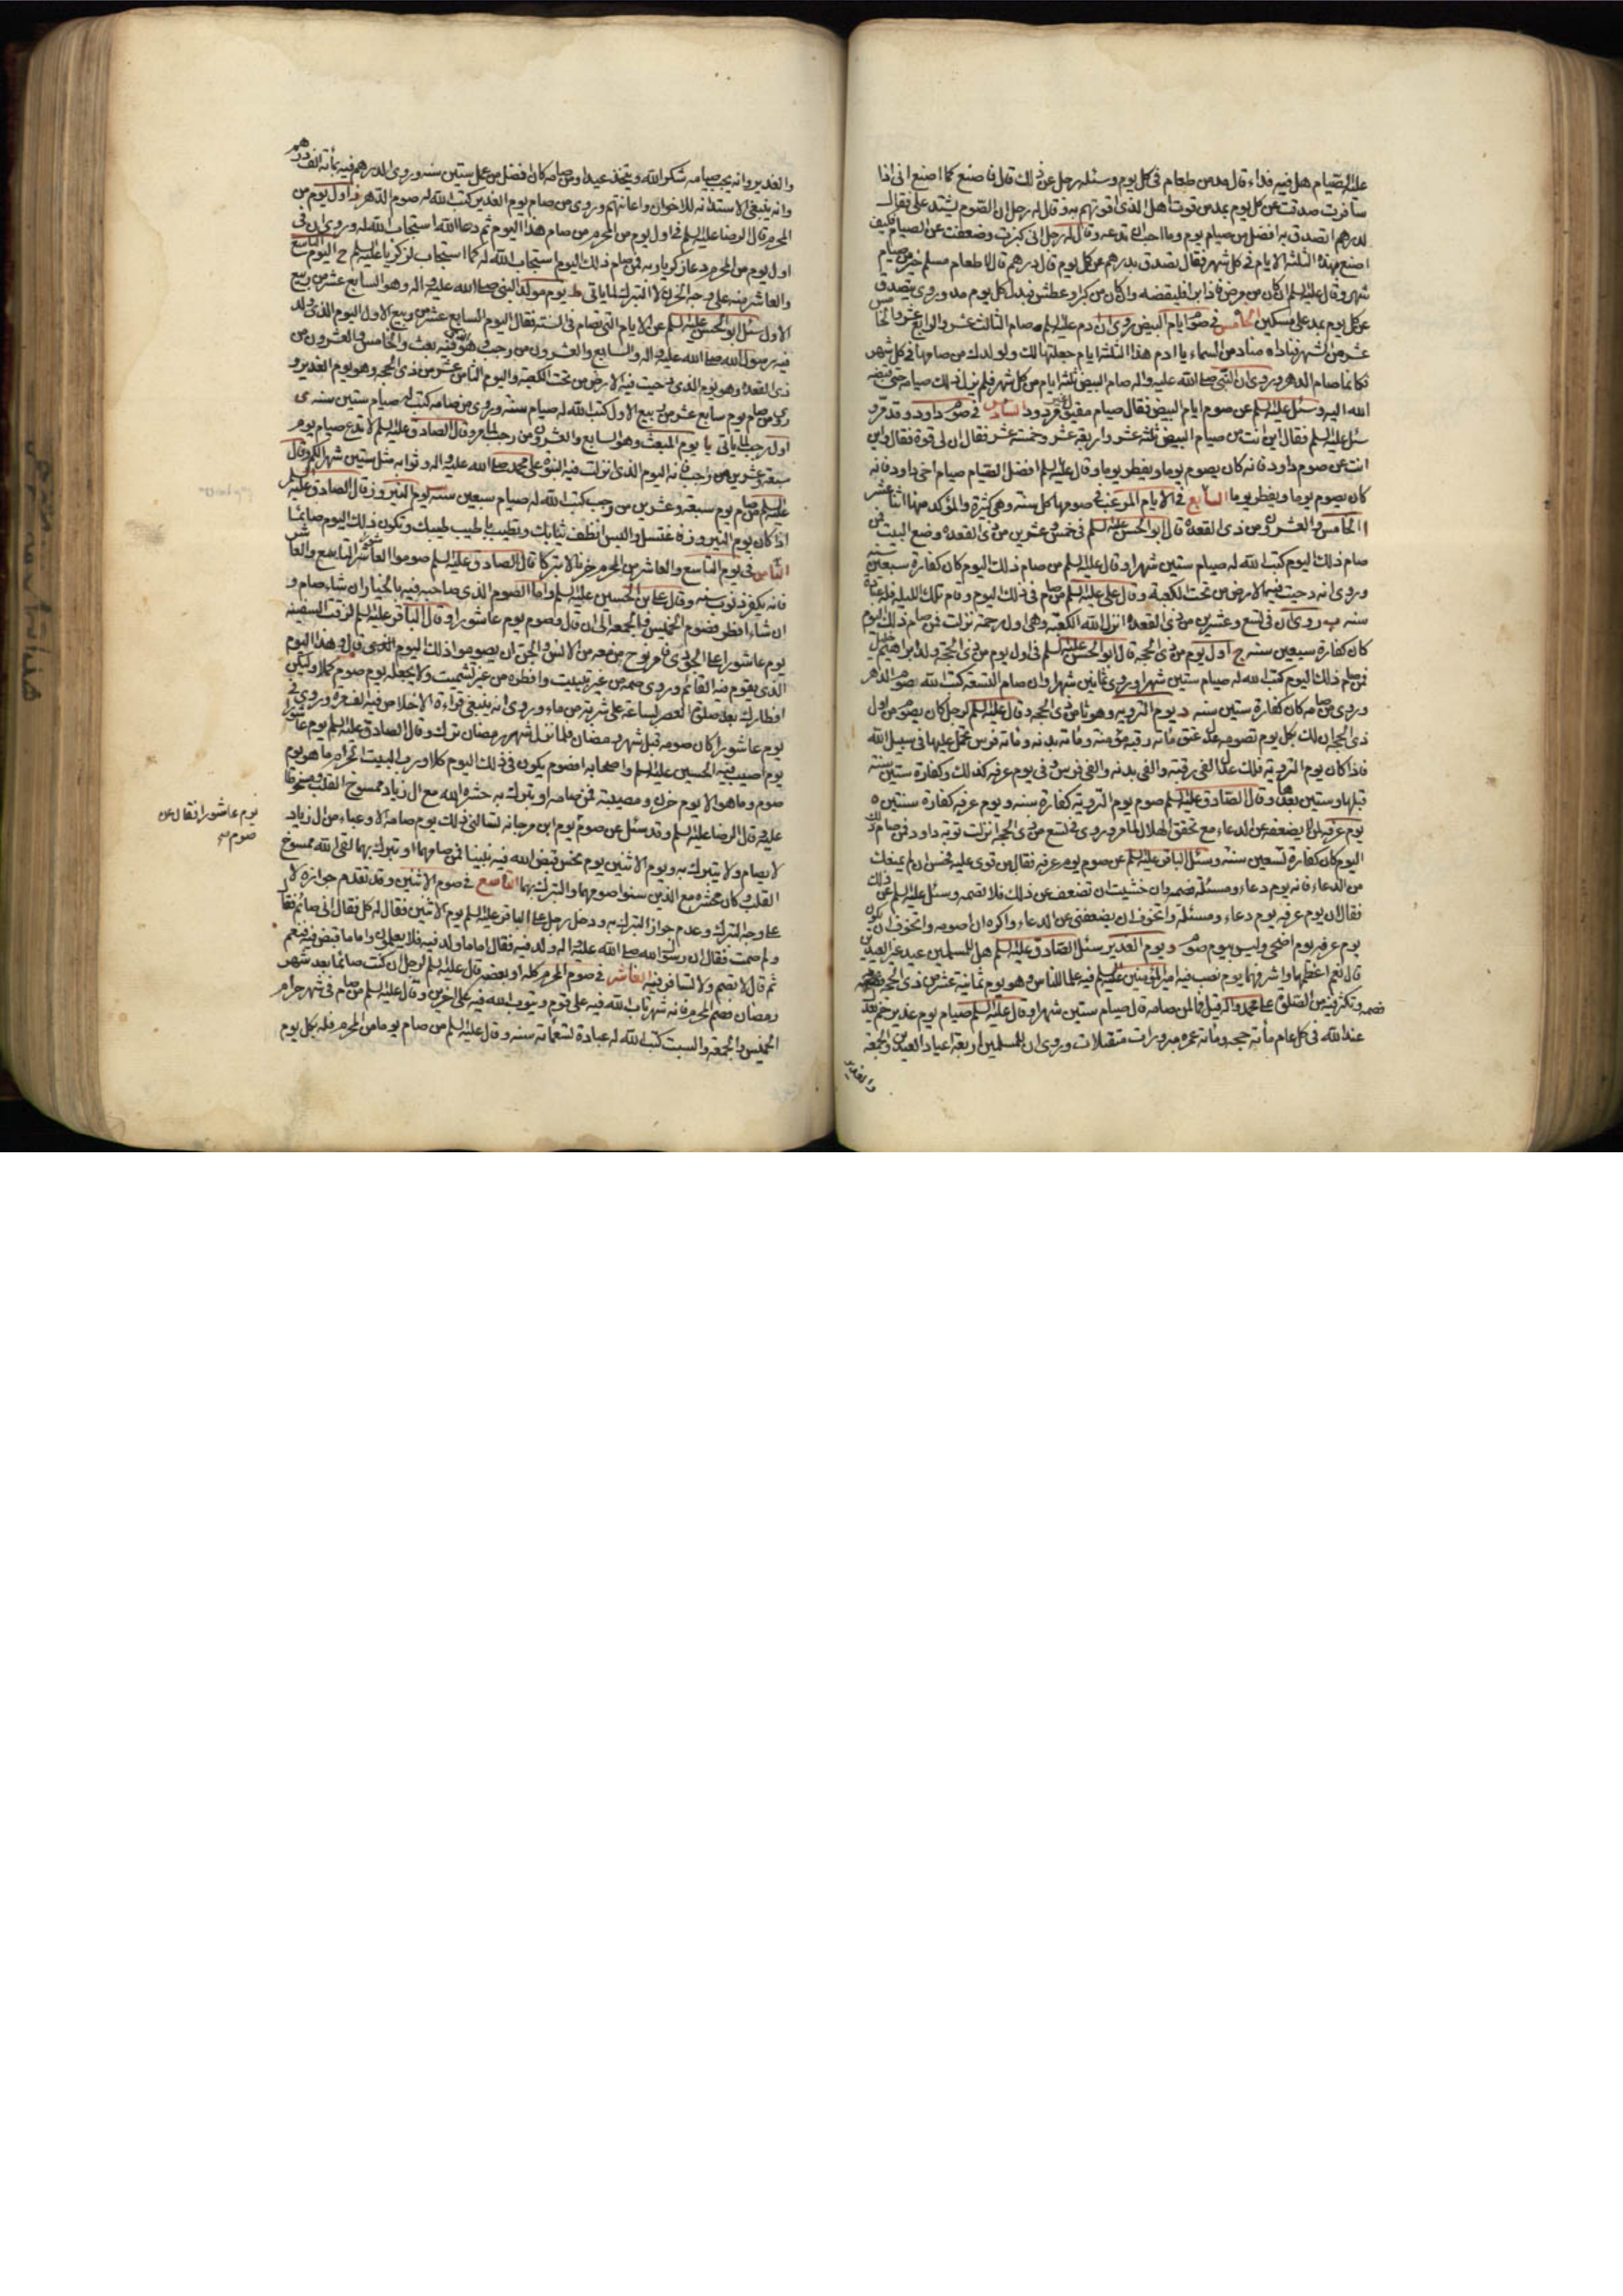 عليه الصيام هل فيه فداء قال مد من طعام في كل يوم وسئله رجل عن ذلك قال فاصنع كما اصنع اني اذا
سافرت صدقت عن كل يوم بمد من قوت اهل الذي اقوتهم به وقال له رجل ان الصوم يشتد علي فقال
لدرهم تصدق به افضل من صيام يوم وما احب ان تدعه وقال له رجل اني كبرت وضعفت عن الصيام فكيف
اصنع بهذه الثلثة الايام في كل شهر فقال تصدق بدرهم عن كل يوم قال درهم قال لاطعام مسلم خير من صيام
شهر وقال عليه السلم ان كان من مرض فاذا برا فليقضه وان كان من كبر او عطش فبدل كل يوم مد وروي يتصدق
عن كل يوم بمد على مسكين الخامس في صوم ايام البيض روي ان ادم عليه السلم صام الثالث عشر والرابع عشر والخامس
عشر من الشهر فناداه مناد من السماء يا ادم هذه الثلثة ايام جعلتها لك ولولدك من صامها في كل شهر
فكانما صام الدهر وروي ان النبي صلى الله عليه واله صام البيض ثلثة ايام من كل شهر فلم يزل ذلك صيامه حتى قبضه
الله اليه وسئل عليه السلم عن صوم ايام البيض فقال صيام مقبول غير مردود السادس في صوم داود وقد مر و
سئل عليه السلم فقال اين انت من صيام البيض ثلثة عشر واربعة عشر وخمسة عشر فقال ان لي قوة فقال واين
انت عن صوم داود فانه كان يصوم يوما ويفطر يوما وقال عليه السلم افضل الصيام صيام اخي داود فانه
كان يصوم يوما ويفطر يوما السابع في الايام المرغب في صومها كل سنة وهي كثيرة والمؤكد منها اثنا عشر
ا الخامس والعشرون من ذي القعدة قال ابو الحسن عليه السلم في خمس وعشرين من ذي القعدة وضع البيت فمن
صام ذلك اليوم كتب الله له صيام ستين شهرا وقال عليه السلم من صام ذلك اليوم كان كفارة سبعين سنة
وروي انه دحيت فيه الارض من تحت الكعبة وقال علي عليه السلم من صام في ذلك اليوم وقام تلك الليلة فله عبادة
سنة ب روي ان في تسع وعشرين من ذي القعدة انزل الله الكعبة وهي اول رحمة نزلت فمن صام ذلك اليوم
كان كفارة سبعين سنة ج اول يوم من ذي الحجة قال ابو الحسن عليه السلم في اول يوم من ذي الحجة ولد ابراهيم خليل
فمن صام ذلك اليوم كتب الله له صيام ستين شهرا وروي ثمانين شهرا وان صام التسعة كتب الله له صوم الدهر
وروي من صامه كان كفارة ستين سنة د يوم التروية وهو ثامن ذي الحجة وقال عليه السلم لرجل كان يصوم من اول
ذي الحجة ان لك بكل يوم تصومه عدل عتق مائة رقبة مؤمنة ومائة بدنة ومائة فرس تحمل عليها في سبيل الله
فاذا كان يوم التروية فلك عدل الفي رقبة والفي بدنة والفي فرس وفي يوم عرفة كذلك وكفارة ستين سنة
قبلها وستين بعدها وقال الصادق عليه السلم صوم يوم التروية كفارة سنة ويوم عرفة كفارة سنتين ه
يوم عرفة لمن لا يضعفه عن الدعاء مع تحقق الهلال لما مر وروي في تسع من ذي الحجة انزلت توبة داود فمن صام ذلك
اليوم كان كفارة تسعين سنة وسئل الباقر عليه السلم عن صوم يوم عرفة فقال من قوي عليه فحسن ان لم يمنعك
من الدعاء فانه يوم دعاء ومسئلة فصمه وان خشيت ان تضعف عن ذلك فلا تصمه وسئل عليه السلم عن ذلك
فقال ان يوم عرفة يوم دعاء ومسئلة واتخوف ان يضعفني عن الدعاء واكره ان اصومه واتخوف ان يكون
يوم عرفة يوم اضحى وليس بيوم صوم و يوم الغدير سئل الصادق عليه السلم هل للمسلمين عيد غير العيدين
قال نعم اعظمها واشرفها يوم نصب فيه امير المؤمنين عليه السلم فيه علما للناس وهو يوم ثمانية عشر من ذي الحجة
فصمه وتكثر فيه من الصلوة على محمد واله قيل فما لمن صامه قال صيام ستين شهرا وقال عليه السلم صيام يوم غدير خم يعدل
عند الله في كل عام مائة حجة ومائة عمرة مبرورات متقبلات وروي ان للمسلمين اربعة اعياد العيدين والجمعة
والغدير
والغدير وانه يجب صيامه شكرا لله ويتخذ عيدا ومن صامه كان افضل من عمل ستين سنة وروي الدرهم فيه بمائة الف درهم
وانه ينبغي الاستدانة للاخوان واعانتهم وروي من صام يوم الغدير كتب الله له صوم الدهر ز اول يوم من
المحرم قال الرضا عليه السلم في اول يوم من المحرم من صام هذا اليوم ثم دعا الله استجاب الله له وروي ان في
اول يوم من المحرم دعا زكريا ربه فمن صام ذلك اليوم استجاب الله له كما استجاب لزكريا عليه السلم ح اليوم التاسع
والعاشر منه على وجه الحزن لا التبرك لما ياتي ط يوم مولد النبي صلى الله عليه واله وهو السابع عشر من ربيع
الاول سئل ابو الحسن عليه السلم عن الايام التي تصام في السنة فقال اليوم السابع عشر من ربيع الاول اليوم الذي ولد
فيه رسول الله صلى الله عليه واله والسابع والعشرون من رجب وهو الذي فيه بعث والخامس والعشرون من
ذي القعدة وهو يوم الذي دحيت فيه الارض من تحت الكعبة واليوم الثامن عشر من ذي الحجة وهو يوم الغدير و
روي من صام يوم سابع عشر من ربيع الاول كتب الله له صيام سنة وروي من صامه كتب له صيام ستين سنة ى
اول رجب لما ياتي يا يوم المبعث وهو السابع والعشرون من رجب لما مر وقال الصادق عليه السلم لا تدع صيام يوم
سبعة وعشرين من رجب فانه اليوم الذي انزلت فيه النبوة على محمد صلى الله عليه واله وثوابه مثل ستين شهرا لكم وقال
عليه السلم من صام يوم سبعة وعشرين من رجب كتب الله له صيام سبعين سنة يب يوم النيروز قال الصادق عليه السلم
اذا كان يوم النيروز فاغتسل والبس انظف ثيابك وتطيب باطيب طيبك وتكون ذلك اليوم صائما
الثامن في يوم التاسع والعاشر من المحرم حزنا لا تبركا قال الصادق عليه السلم صوموا العاشوراء التاسع والعاشر
فانه يكفر ذنوب سنة وقال علي بن الحسين عليه السلم واما الصوم الذي صاحبه فيه بالخيار ان شاء صام و
ان شاء افطر فصوم الخميس والجمعة الى ان قال وصوم يوم عاشورا وقال الباقر عليه السلم لزقت السفينة
يوم عاشورا على الجودي فامر نوح من معه من الانس والجن ان يصوموا ذلك اليوم الى ان قال وهذا اليوم
الذي يقوم فيه القائم وروي صمه من غير تبييت وافطره من غير تشميت ولا تجعله يوم صوم كملا وليكن
افطارك بعد صلوة العصر بساعة على شربة من ماء وروي انه ينبغي قراءة الاخلاص فيه الف مرة وروي في
يوم عاشورا كان صومه قبل شهر رمضان فلما نزل شهر رمضان ترك وقال الصادق عليه السلم يوم عاشورا
يوم اصيب فيه الحسين عليه السلم واصحابه افصوم يكون في ذلك اليوم كلا ورب البيت الحرام ما هو يوم
صوم وما هو الا يوم حزن ومصيبة فمن صامه او تبرك به حشره الله مع ال زياد ممسوخ القلب مسخوطا
عليه وقال الرضا عليه السلم وقد سئل عن صوم يوم ابن مرجانة تسالني ذلك يوم صامه الادعياء من ال زياد
لا يصام ولا يتبرك به ويوم الاثنين يوم نحس قبض الله فيه نبينا فمن صامهما او تبرك بهما لقي الله ممسوخ
القلب وكان محشره مع الذين سنوا صومهما والتبرك بهما التاسع في صوم الاثنين وقد تقدم جوازه لا
على وجه التبرك وعدم جواز التبرك به ودخل رجل على الباقر عليه السلم يوم الاثنين فقال له كل فقال اني صائم فقال
ولم صمت فقال ان رسول الله صلى الله عليه اله ولد فيه فقال اما ما ولد فيه فلا يعلمون واما ما قبض فيه فنعم
ثم قال لا تصم ولا تسافر فيه العاشر في صوم المحرم كله او بعضه قال عليه السلم لرجل ان كنت صائما بعد شهر
رمضان فصم المحرم فانه شهر تاب الله فيه على قوم ويتوب الله فيه على اخرين وقال عليه السلم من صام في شهر حرام
الخميس والجمعة والسبت كتب الله له عبادة تسعمائة سنة وقال عليه السلم من صام يوما من المحرم فله بكل يوم
يوم عاشورا فقال عن
صوم